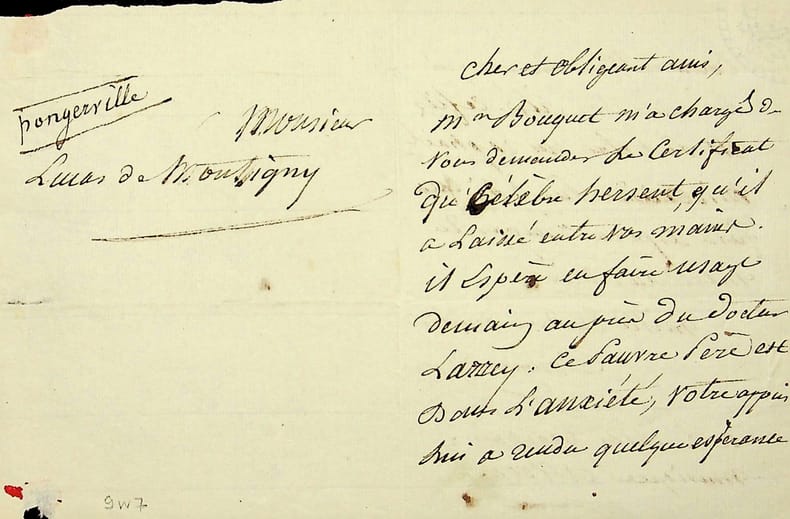 pongerville
Monsieur
Lucas de Montigny
9W7
cher et obligeant ami,
Mr Bouquet m'a chargé de
vous demander le Certificat
du Célèbre hersent, qu'il
a Laissé entre vos mains.
il Espère en faire usage
demain auprès du docteur
Larrey. Ce Pauvre Père est
Dans L'anxiété, votre appui
lui a rendu quelque espérance